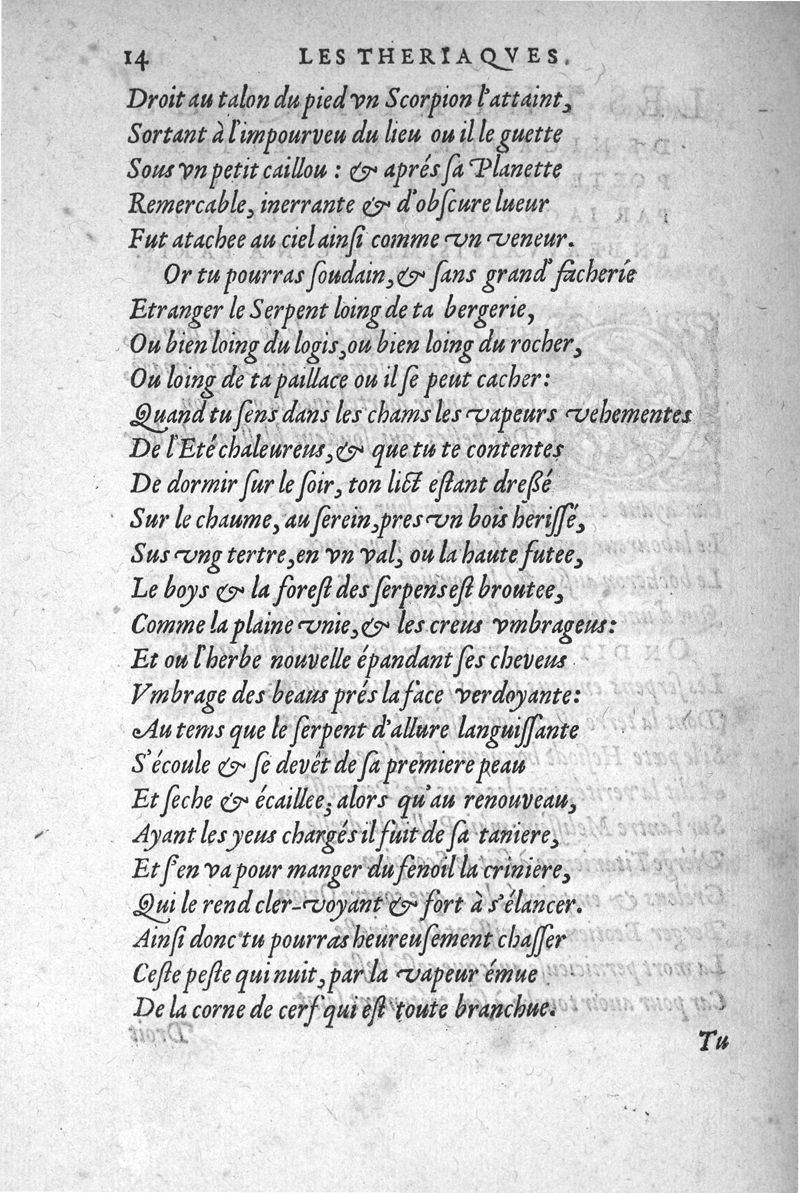 14 LES THERIAQVES.
Droit au talon du pied vn Scorpion l'attaint,
Sortant à l'impourveu du lieu ou il le guette
Sous vn petit caillou : & aprés ſa Planette
Remercable, inerrante & d'obſcure lueur
Fut atachee au ciel ainſi comme vn veneur.
Or tu pourras ſoudain, & ſans grand' fácherie
Etranger le Serpent loing de ta bergerie,
Ou bien loing du logis, ou bien loing du rocher,
Ou loing de ta paillace ou il ſe peut cacher:
Quand tu ſens dans les chams les vapeurs vehementes
De l'Eté chaleureus, & que tu te contentes
De dormir ſur le ſoir, ton lict eſtant dreßé
Sur le chaume, au ſerein, pres vn bois heriſſé,
Sus vng tertre, en vn val, ou la haute futee,
Le boys & la foreſt des ſerpens eſt broutee,
Comme la plaine vnie, & les creus vmbrageus:
Et ou l'herbe nouvelle épandant ſes cheveus
Vmbrage des beaus prés la face verdoyante:
Au tems que le ſerpent d'allure languiſſante
S'écoule & ſe devêt de ſa premiere peau
Et ſeche & écaillee; alors qu'au renouveau,
Ayant les yeus chargés il fuit de ſa taniere,
Et s'en va pour manger du fenoil la criniere,
Qui le rend cler-voyant & fort à s'élancer.
Ainſi donc tu pourras heureuſement chaſſer
Ceſte peſte qui nuit, par la vapeur émue
De la corne de cerf qui eſt toute branchue.
Tu